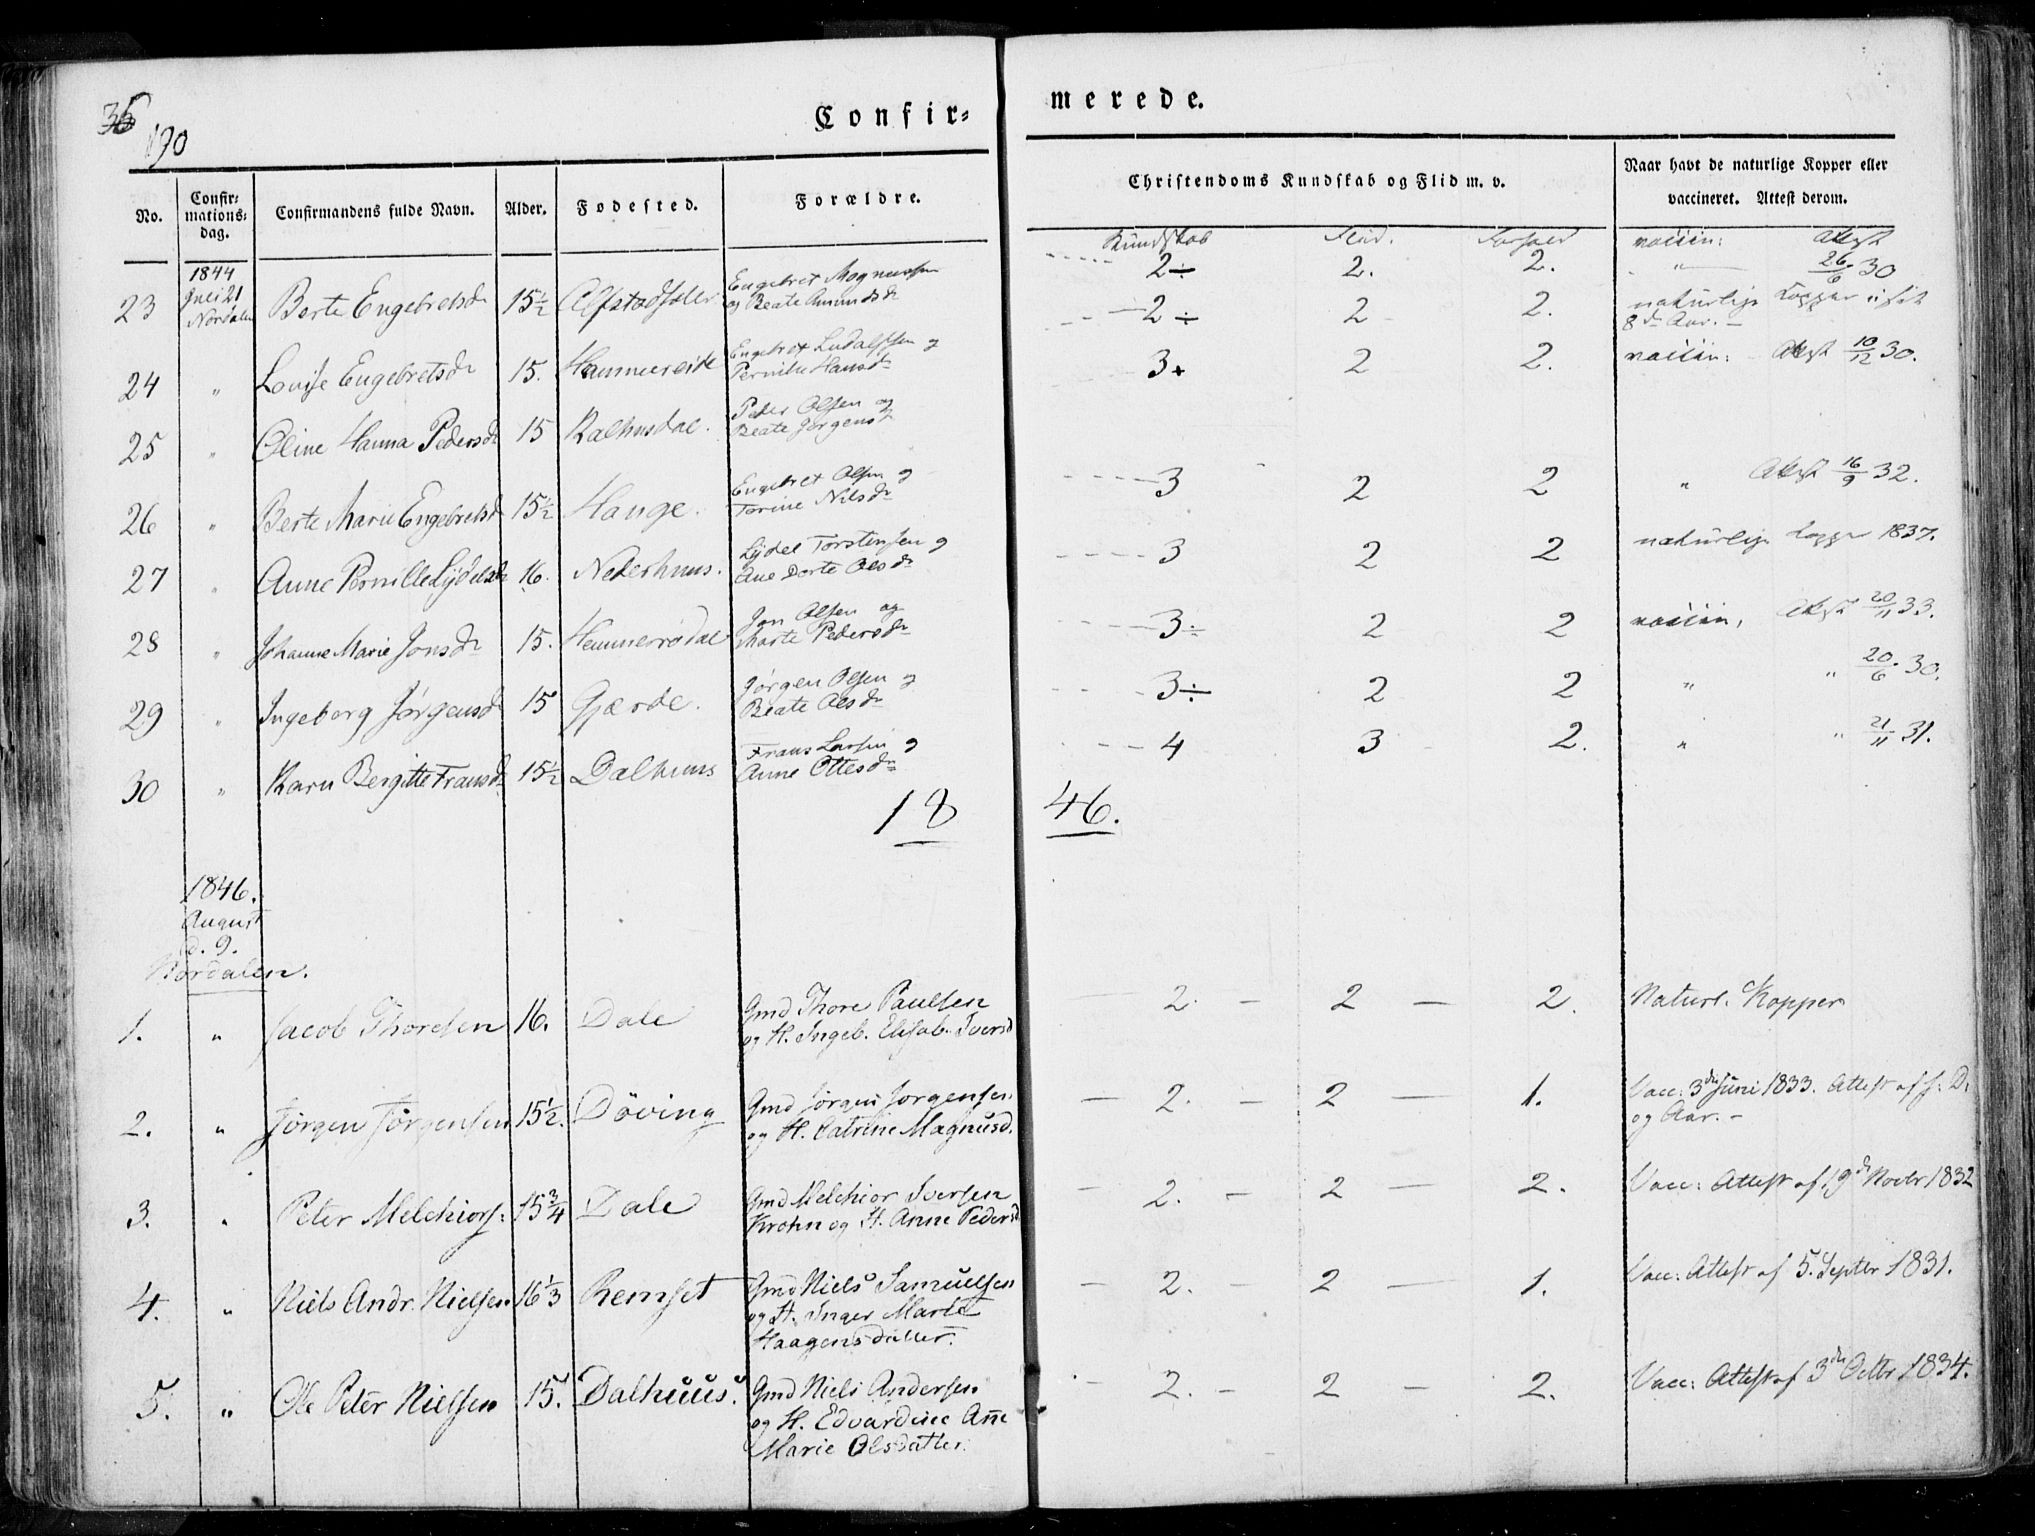 35
190
Confir=
merede.
No.
Confir=
mations=
dag.
Confirmandens fulde Navn.
Alder.
Fødested.
Forældre.
Christendoms Kundskab og Flid m. v.
Naar havt de naturlige Kopper eller
vaccineret. Attest derom.
Kundskab Flid. Forhold
2÷ 2. 2. 26/6 30
1844
Juli 21
Nordalen
23 Berte Engebretsdr 15½
Engebret Magnussen
og Beate Amundsdr
2÷ 2 2. naturlige Kopper i sit
8de Aar. –
24 „ Lovise Engebretsdr 15.
Engebret Ludalfsen og
Pernille Hansdr
3+ 2 2. Attest 10/12 30.
25 „ Oline Hanna Pedersdr 15 Kalhusdal.
Peder Olsen og
Beate Jørgensdr
26 „ Berte Marie Engebretsdr 15½ Hauge.
Engebret Olsen og
Torine Nilsdr
3 2 2 „ Attest 16/9 32.
27 „ Anne Pernille Lydelsdr 16. Nederhuus.
Lydel Torstensen og
Ane Dorte Olsdr
3 2 2 naturlige Kopper 1837.
28 „ Johanne Marie Jonsdr 15.
Jon Olsen og
Marte Pedersdr
3÷ 2 2 Attest 20/11 33.
29 „ Ingeborg Jørgensdr 15 Gjærde.
Jørgen Olsen og
Beate Olsdr
3÷ 2 2 „ „ 20/6 30.
30 „ Karn Bergitte Fransdr 15½ Dalhuus
Frans Larsen og
Anne Ottesdr
4 3 2. „ „ 21/11 31.
18 46.
1846.
August
d. 9.
Nordalen.
1. „ Jacob Thoresen 16. Dale
Gmd Thore Paulsen
og H. Ingeb. Elisab. Iversd
2. – 2 – 2. Naturl. Kopper
2. „ Jørgen Jørgensen 15½. Døving
Gmd Jørgen Jørgensen
og H. Catrine Magnusd.
– 2. – 2 – 1. Vacc: 3die Juni 1833. Attest af s: D:
og Aar. –
3. „ Peter Melchiors: 15¾ Dale
Gmd Melchior Iversen
Krohn og H. Anne Pedersd
– 2. – 2 – 2. Vacc: Attest af 19de Novbr 1832
4. „ Niels Andr. Nielsen 16⅓ Remset
Gmd Niels Samuelsen
og H. Inger Marte
Haagensdatter.
– 2. – 2 – 1. Vacc: Attest af 5. Septbr 1831.
5. „ Ole Peter Nielsen 15. Dalhuus.
Gmd Niels Andersen
og H. Edvardine Ane
Marie Olsdatter.
– 2. – 2 – 2. Vacc: Attest af 3die Octbr 1834.